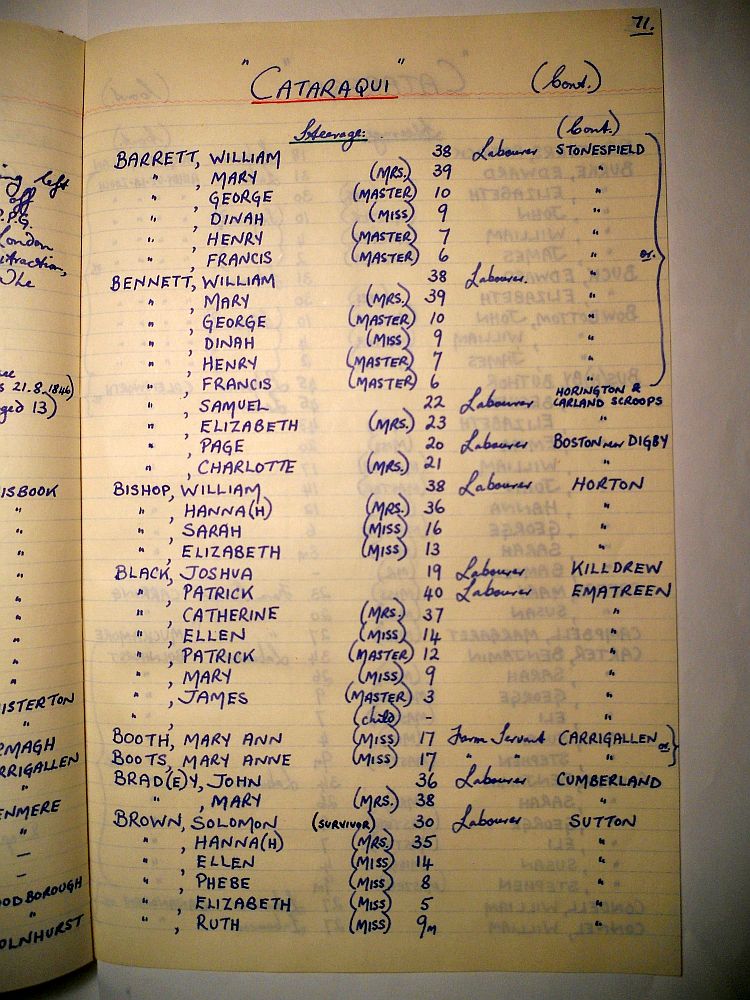 71.
"CATARAQUI" (Cont.)
Steerage: (Cont.)
BARRETT, WILLIAM 38 Labourer STONESFIELD
" , MARY (MRS.) 39 "
" , GEORGE (MASTER) 10 "
" , DINAH (MISS) 9 "
" , HENRY (MASTER) 7 "
" , FRANCIS (MASTER) 6 " or.
BENNETT, WILLIAM 38 Labourer. "
" , MARY (MRS.) 39 "
" , GEORGE (MASTER) 10 "
" , DINAH (MISS) 9 "
" , HENRY (MASTER) 7 "
" , FRANCIS (MASTER) 6 "
" , SAMUEL 22 Labourer HORINGTON & CARLAND SCROOPS
" , ELIZABETH (MRS.) 23 "
" , PAGE 20 Labourer BOSTON near DIGBY
" , CHARLOTTE (MRS.) 21 "
BISHOP, WILLIAM 38 Labourer HORTON
" , HANNA(H) (MRS.) 36 "
" , SARAH (MISS) 16 "
" , ELIZABETH (MISS) 13 "
BLACK, JOSHUA 19 Labourer KILLDREW
" , PATRICK 40 Labourer EMATREEN
" , CATHERINE (MRS.) 37 "
" , ELLEN (MISS) 14 "
" , PATRICK (MASTER) 12 "
" , MARY (MISS) 9 "
" , JAMES (MASTER) 3 "
" , (child) - "
BOOTH, MARY ANN (MISS) 17 Farm Servant CARRIGALLEN or.
BOOTS, MARY ANNE (MISS) 17 " " "
BRAD(E)Y, JOHN 36 Labourer CUMBERLAND
" , MARY (MRS.) 38 "
BROWN, SOLOMON (SURVIVOR) 30 Labourer SUTTON
" , HANNA(H) (MRS.) 35 "
" , ELLEN (MISS) 14 "
" , PHEBE (MISS) 8 "
" , ELIZABETH (MISS) 5 "
" , RUTH (MISS) 9m "
left
off
P.P.G.
London
The
21.8.1846)
aged 13)
ISBOOK
"
"
"
"
"
"
"
"
"
ISTERTON
"
RMAGH
RRIGALLEN
"
ENMERE
"
—
—
OODBOROUGH
"
OLNHURST